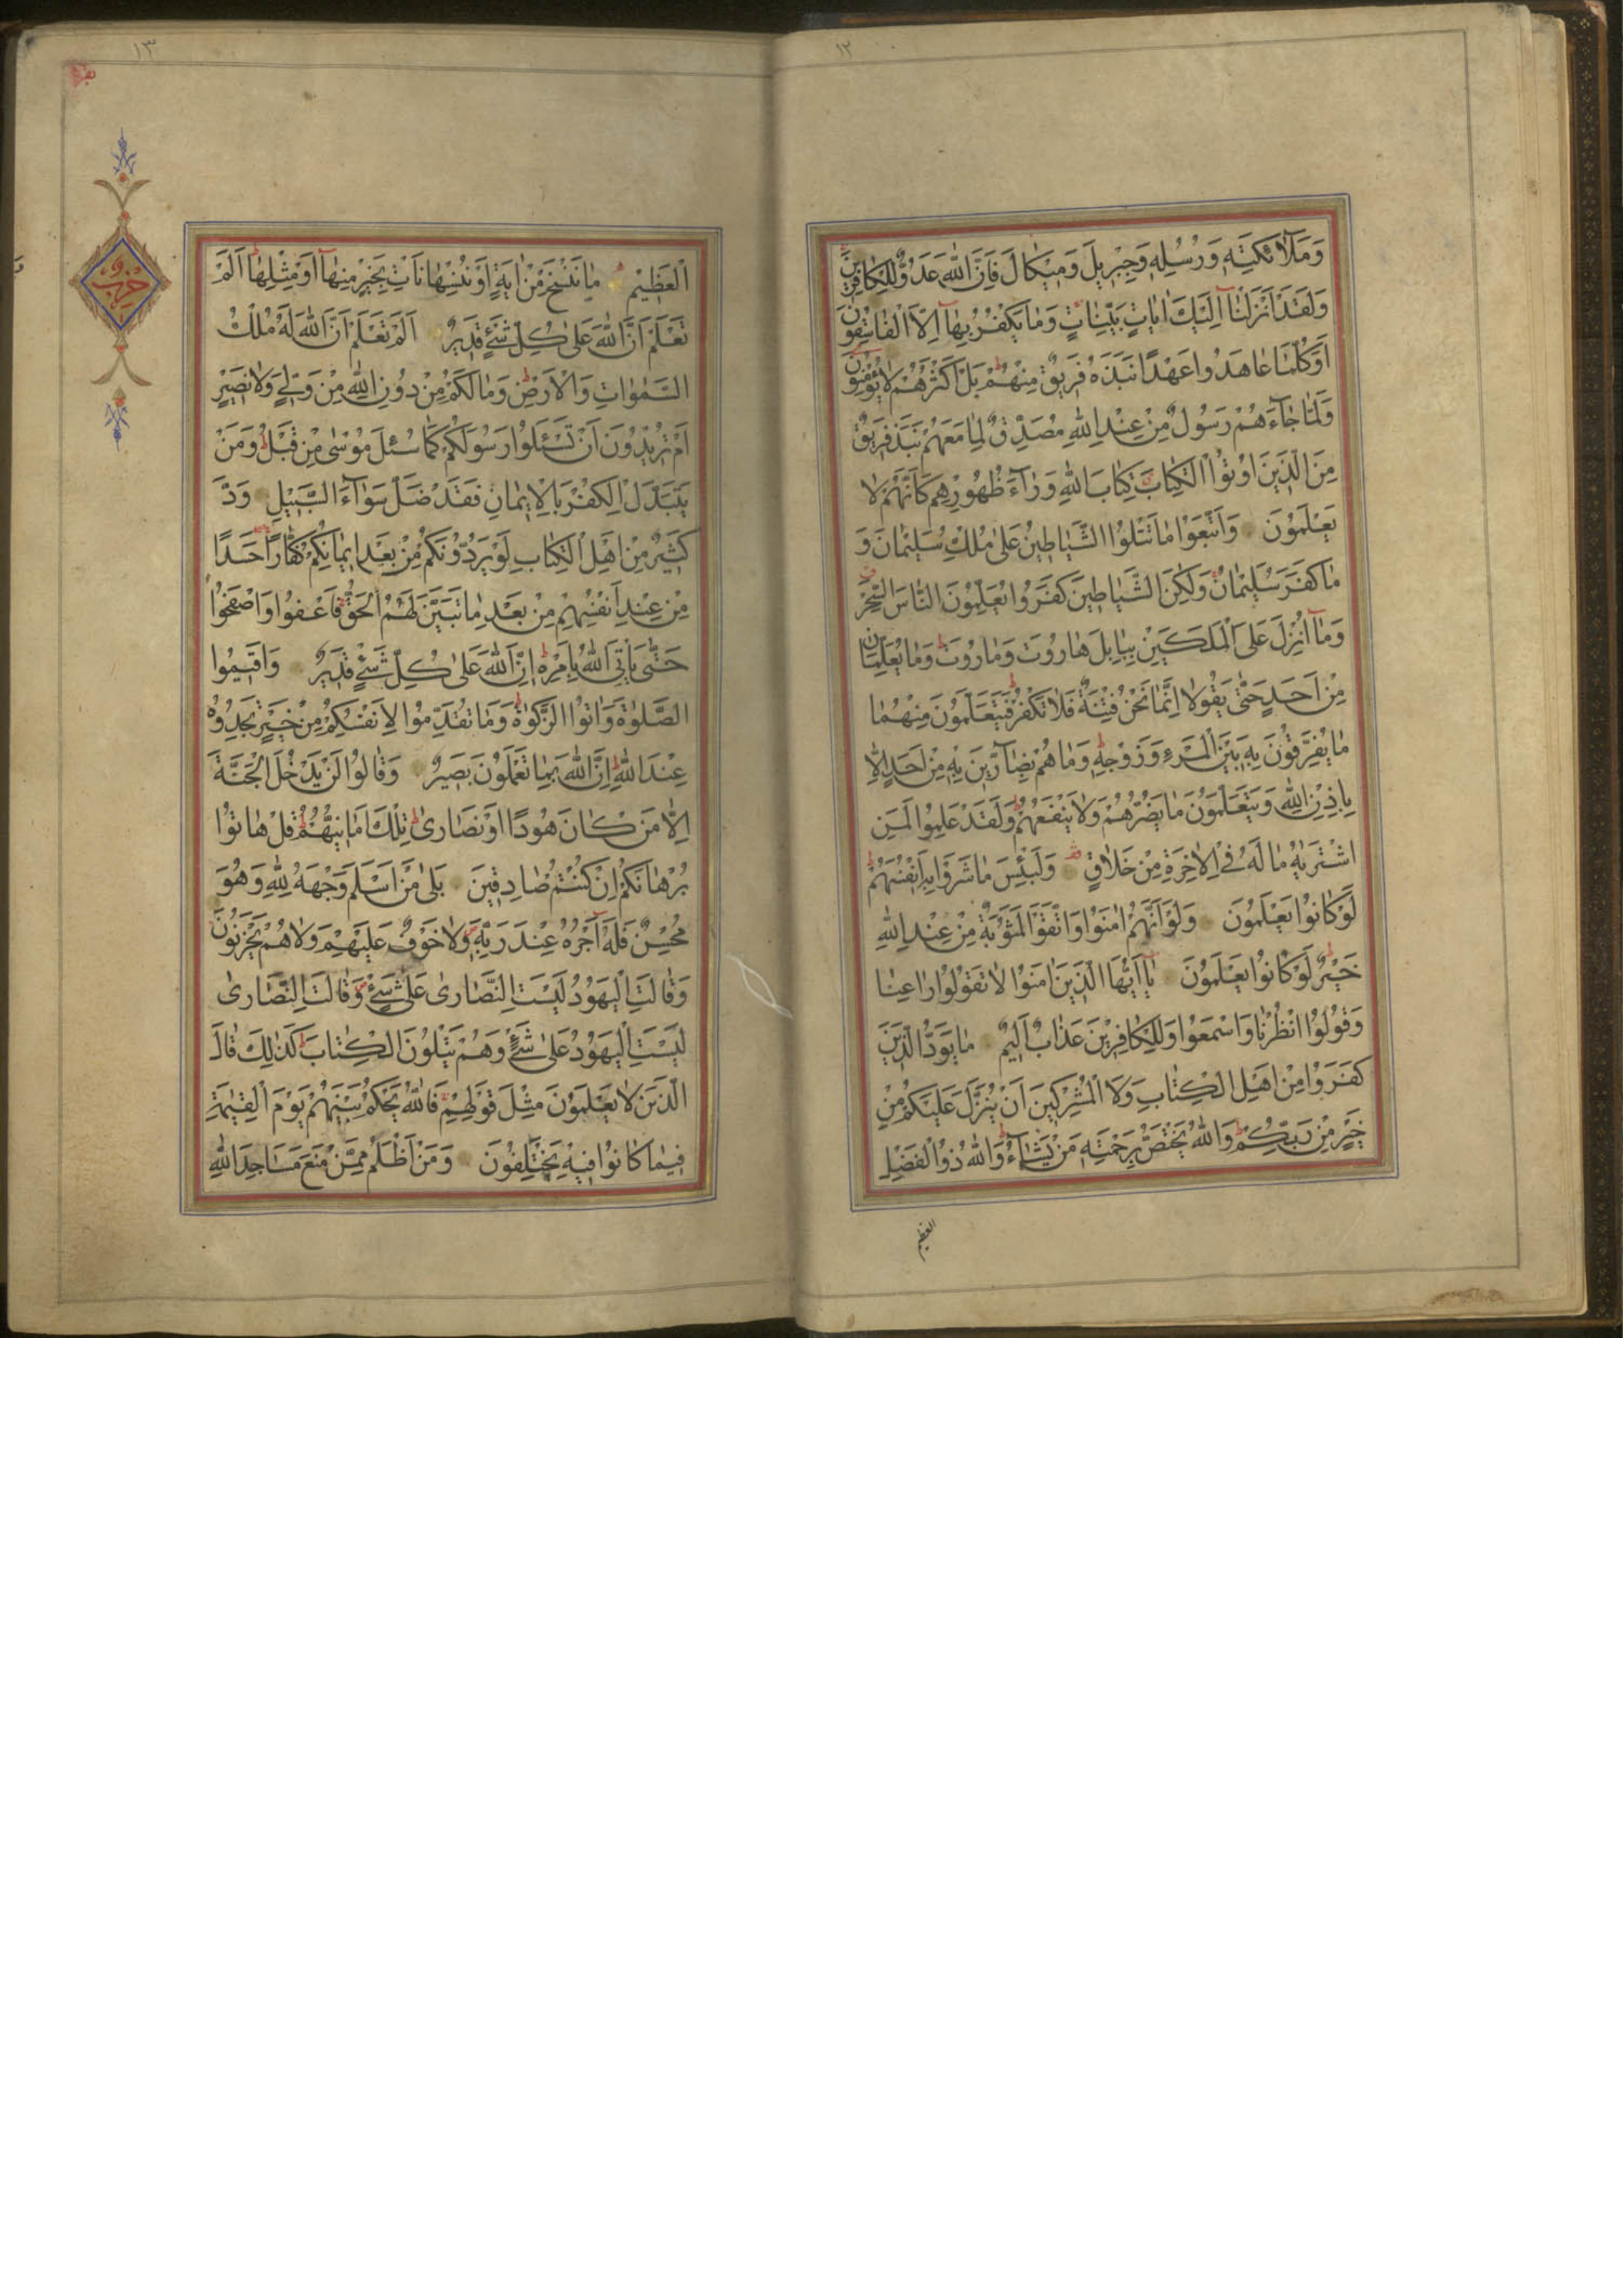 ١٢
وَمَلَآئِكَتِهِ وَرُسُلِهِ وَجِبْرِيلَ وَمِيكَالَ فَاِنَّ اللّٰهَ عَدُوٌّ لِلْكَافِرِينَ
وَلَقَدْ اَنْزَلْنَآ اِلَيْكَ اٰيَاتٍ بَيِّنَاتٍ وَمَا يَكْفُرُ بِهَآ اِلَّا الْفَاسِقُونَ
اَوَكُلَّمَا عَاهَدُوا عَهْدًا نَبَذَهُ فَرِيقٌ مِنْهُمْ بَلْ اَكْثَرُهُمْ لَا يُؤْمِنُونَ
وَلَمَّا جَآءَهُمْ رَسُولٌ مِنْ عِنْدِ اللّٰهِ مُصَدِّقٌ لِمَا مَعَهُمْ نَبَذَ فَرِيقٌ
مِنَ الَّذِينَ اُوتُوا الْكِتَابَ كِتَابَ اللّٰهِ وَرَآءَ ظُهُورِهِمْ كَاَنَّهُمْ لَا
يَعْلَمُونَ وَاتَّبَعُوا مَا تَتْلُوا الشَّيَاطِينُ عَلٰى مُلْكِ سُلَيْمَانَ وَ
مَا كَفَرَ سُلَيْمَانُ وَلٰكِنَّ الشَّيَاطِينَ كَفَرُوا يُعَلِّمُونَ النَّاسَ السِّحْرَ
وَمَآ اُنْزِلَ عَلَى الْمَلَكَيْنِ بِبَابِلَ هَارُوتَ وَمَارُوتَ وَمَا يُعَلِّمَانِ
مِنْ اَحَدٍ حَتّٰى يَقُولَا اِنَّمَا نَحْنُ فِتْنَةٌ فَلَا تَكْفُرْ فَيَتَعَلَّمُونَ مِنْهُمَا
مَا يُفَرِّقُونَ بِهِ بَيْنَ الْمَرْءِ وَزَوْجِهِ وَمَا هُمْ بِضَآرِّينَ بِهِ مِنْ اَحَدٍ اِلَّا
بِاِذْنِ اللّٰهِ وَيَتَعَلَّمُونَ مَا يَضُرُّهُمْ وَلَا يَنْفَعُهُمْ وَلَقَدْ عَلِمُوا لَمَنِ
اشْتَرٰيهُ مَا لَهُ فِي الْاٰخِرَةِ مِنْ خَلَاقٍ وَلَبِئْسَ مَا شَرَوْا بِهِ اَنْفُسَهُمْ
لَوْ كَانُوا يَعْلَمُونَ وَلَوْ اَنَّهُمْ اٰمَنُوا وَاتَّقَوْا لَمَثُوبَةٌ مِنْ عِنْدِ اللّٰهِ
خَيْرٌ لَوْ كَانُوا يَعْلَمُونَ يَآ اَيُّهَا الَّذِينَ اٰمَنُوا لَا تَقُولُوا رَاعِنَا
وَقُولُوا انْظُرْنَا وَاسْمَعُوا وَلِلْكَافِرِينَ عَذَابٌ اَلِيمٌ مَا يَوَدُّ الَّذِينَ
كَفَرُوا مِنْ اَهْلِ الْكِتَابِ وَلَا الْمُشْرِكِينَ اَنْ يُنَزَّلَ عَلَيْكُمْ مِنْ
خَيْرٍ مِنْ رَبِّكُمْ وَاللّٰهُ يَخْتَصُّ بِرَحْمَتِهِ مَنْ يَشَآءُ وَاللّٰهُ ذُو الْفَضْلِ
العظيم
١٣
حزب
الْعَظِيمِ مَا نَنْسَخْ مِنْ اٰيَةٍ اَوْ نُنْسِهَا نَاْتِ بِخَيْرٍ مِنْهَآ اَوْ مِثْلِهَآ اَلَمْ
تَعْلَمْ اَنَّ اللّٰهَ عَلٰى كُلِّ شَيْءٍ قَدِيرٌ اَلَمْ تَعْلَمْ اَنَّ اللّٰهَ لَهُ مُلْكُ
السَّمٰوَاتِ وَالْاَرْضِ وَمَا لَكُمْ مِنْ دُونِ اللّٰهِ مِنْ وَلِيٍّ وَلَا نَصِيرٍ
اَمْ تُرِيدُونَ اَنْ تَسْئَلُوا رَسُولَكُمْ كَمَا سُئِلَ مُوسٰى مِنْ قَبْلُ وَمَنْ
يَتَبَدَّلِ الْكُفْرَ بِالْاِيمَانِ فَقَدْ ضَلَّ سَوَآءَ السَّبِيلِ وَدَّ
كَثِيرٌ مِنْ اَهْلِ الْكِتَابِ لَوْ يَرُدُّونَكُمْ مِنْ بَعْدِ اِيمَانِكُمْ كُفَّارًا حَسَدًا
مِنْ عِنْدِ اَنْفُسِهِمْ مِنْ بَعْدِ مَا تَبَيَّنَ لَهُمُ الْحَقُّ فَاعْفُوا وَاصْفَحُوا
حَتّٰى يَاْتِيَ اللّٰهُ بِاَمْرِهِ اِنَّ اللّٰهَ عَلٰى كُلِّ شَيْءٍ قَدِيرٌ وَاَقِيمُوا
الصَّلٰوةَ وَاٰتُوا الزَّكٰوةَ وَمَا تُقَدِّمُوا لِاَنْفُسِكُمْ مِنْ خَيْرٍ تَجِدُوهُ
عِنْدَ اللّٰهِ اِنَّ اللّٰهَ بِمَا تَعْمَلُونَ بَصِيرٌ وَقَالُوا لَنْ يَدْخُلَ الْجَنَّةَ
اِلَّا مَنْ كَانَ هُودًا اَوْ نَصَارٰى تِلْكَ اَمَانِيُّهُمْ قُلْ هَاتُوا
بُرْهَانَكُمْ اِنْ كُنْتُمْ صَادِقِينَ بَلٰى مَنْ اَسْلَمَ وَجْهَهُ لِلّٰهِ وَهُوَ
مُحْسِنٌ فَلَهُ اَجْرُهُ عِنْدَ رَبِّهِ وَلَا خَوْفٌ عَلَيْهِمْ وَلَا هُمْ يَحْزَنُونَ
وَقَالَتِ الْيَهُودُ لَيْسَتِ النَّصَارٰى عَلٰى شَيْءٍ وَقَالَتِ النَّصَارٰى
لَيْسَتِ الْيَهُودُ عَلٰى شَيْءٍ وَهُمْ يَتْلُونَ الْكِتَابَ كَذٰلِكَ قَالَ
الَّذِينَ لَا يَعْلَمُونَ مِثْلَ قَوْلِهِمْ فَاللّٰهُ يَحْكُمُ بَيْنَهُمْ يَوْمَ الْقِيٰمَةِ
فِيمَا كَانُوا فِيهِ يَخْتَلِفُونَ وَمَنْ اَظْلَمُ مِمَّنْ مَنَعَ مَسَاجِدَ اللّٰهِ